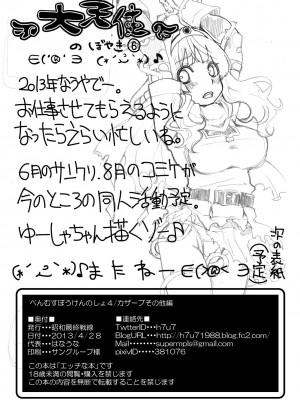 大天使
のぼやき⑥
2013年なうやでー。
お仕事させてもらえるように
なったらえらい忙しいね。
6月のサンクリ、8月のコミケが
今のところの同人予定。
ゆーしゃちゃん描くゾー♪
またねー
次の表紙
(予定)
べんむすぼうけんのしょ4/カザーブその他編
■奥付■
発行・・・昭和最終戦線
発行日・・・2013/4/28
代表・・・はなうな
印刷・・・サングループ様
■連絡先■
TwtterID・・・h7u7
BlogURL・・・http://h7u71988.blog.fc2.com/
mail・・・supermpls@gmail.com
pixivID・・・381076
この本は「エッチな本」です
18歳未満の閲覧・購入を禁じます
この本の内容を無断で転載することを禁じます